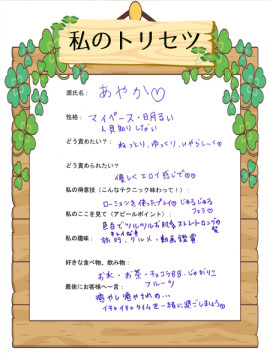 私のトリセツ
源氏名: あやか♡
性格: マイペース・明るい
人見知りしない
どう責めたい?: ねっとり、ゆっくり、いやらしく♡
どう責められたい?
優しくエロイ感じで♡
私の得意技(こんなテクニック味わって!):
ローションを使ったプレイ♡じゅるじゅる
フェラ♡
私のここを見て(アピールポイント):
色白でツルツルお肌 ストレートロングの
髪
キレイな
私の趣味: 旅行、グルメ・動画鑑賞
好きな食べ物、飲み物:
お水・お茶・チョコ・じゃがりこ
フルーツ
最後にお客様へ一言:
癒やし癒やされの…
イチャイチャタイムを一緒に過ごしましょう♡